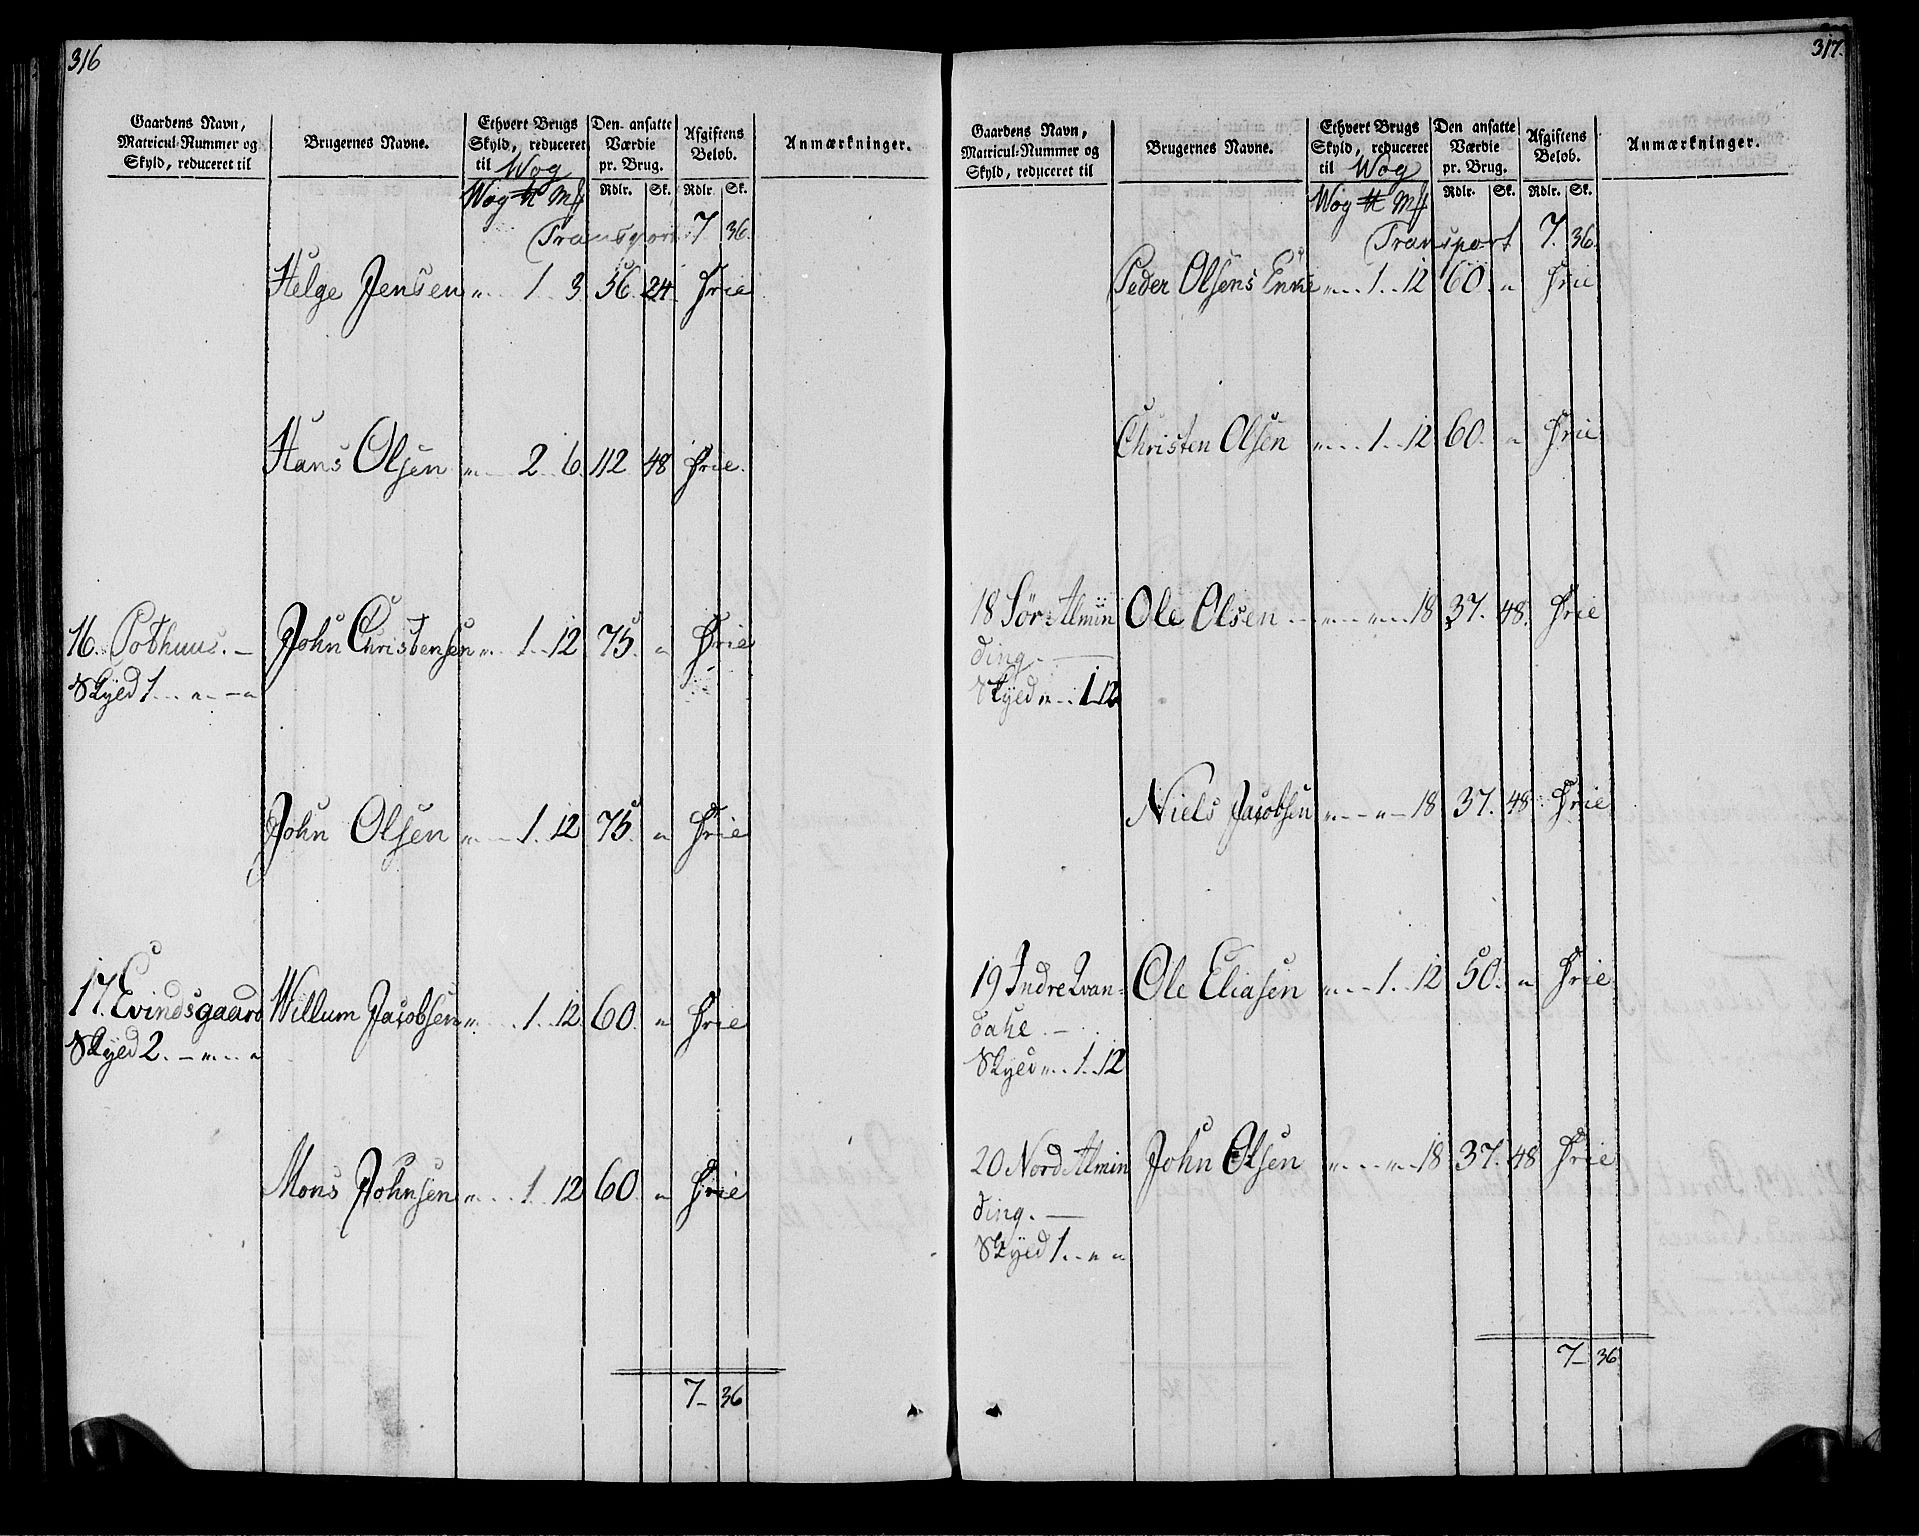 316
Gaardens Navn, Matricul-Nummer og Skyld, reduceret til
Brugernes Navne.
Ethvert Brugs Skyld, reduceret til Wog
Den ansatte Værdie pr. Brug.
Afgiftens Beløb.
Anmærkninger.
Wog ℔ Mk Rdlr. Sk. Rdlr. Sk.
Transport 7 36.
Helge Jensen „ 1 3 56. 24 Frie
Hans Olsen „ 2 6 112 48 Frie.
16. Pothuus. John Christensen „ 1 12 75. „ Frie
Skyld 1 „ „
John Olsen „ 1 12 75. „ Frie
17. Evindsgaard Willum Jacobsen „ 1 12 60. „ Frie
Skyld 2. „ „
Mons Johnsen „ 1 12 60. „ Frie
7 36
317.
Gaardens Navn, Matricul-Nummer og Skyld, reduceret til
Brugernes Navne.
Ethvert Brugs Skyld, reduceret til Wog
Den ansatte Værdie pr. Brug.
Afgiftens Beløb.
Anmærkninger.
Wog ℔ Mk Rdlr. Sk. Rdlr. Sk.
Transport 7. 36.
Peder Olsens Enke „ 1 12 60. „ Frie
Christen Olsen „ 1 12 60. „ Frie
18 Sör-Almin Ole Olsen „ „ 18 37. 48. Frie
ding.
Skyld „ 1 12
Niels Jacobsen „ „ 18 37. 48 Frie
19 Indre Qvan- Ole Eliasen „ 1 12 50. „ Frie
dahl.
Skyld „ 1 12
20 Nord Almin John Olsen „ „ 18 37. 48 Frie
ding.
Skyld 1. „ „
7 36